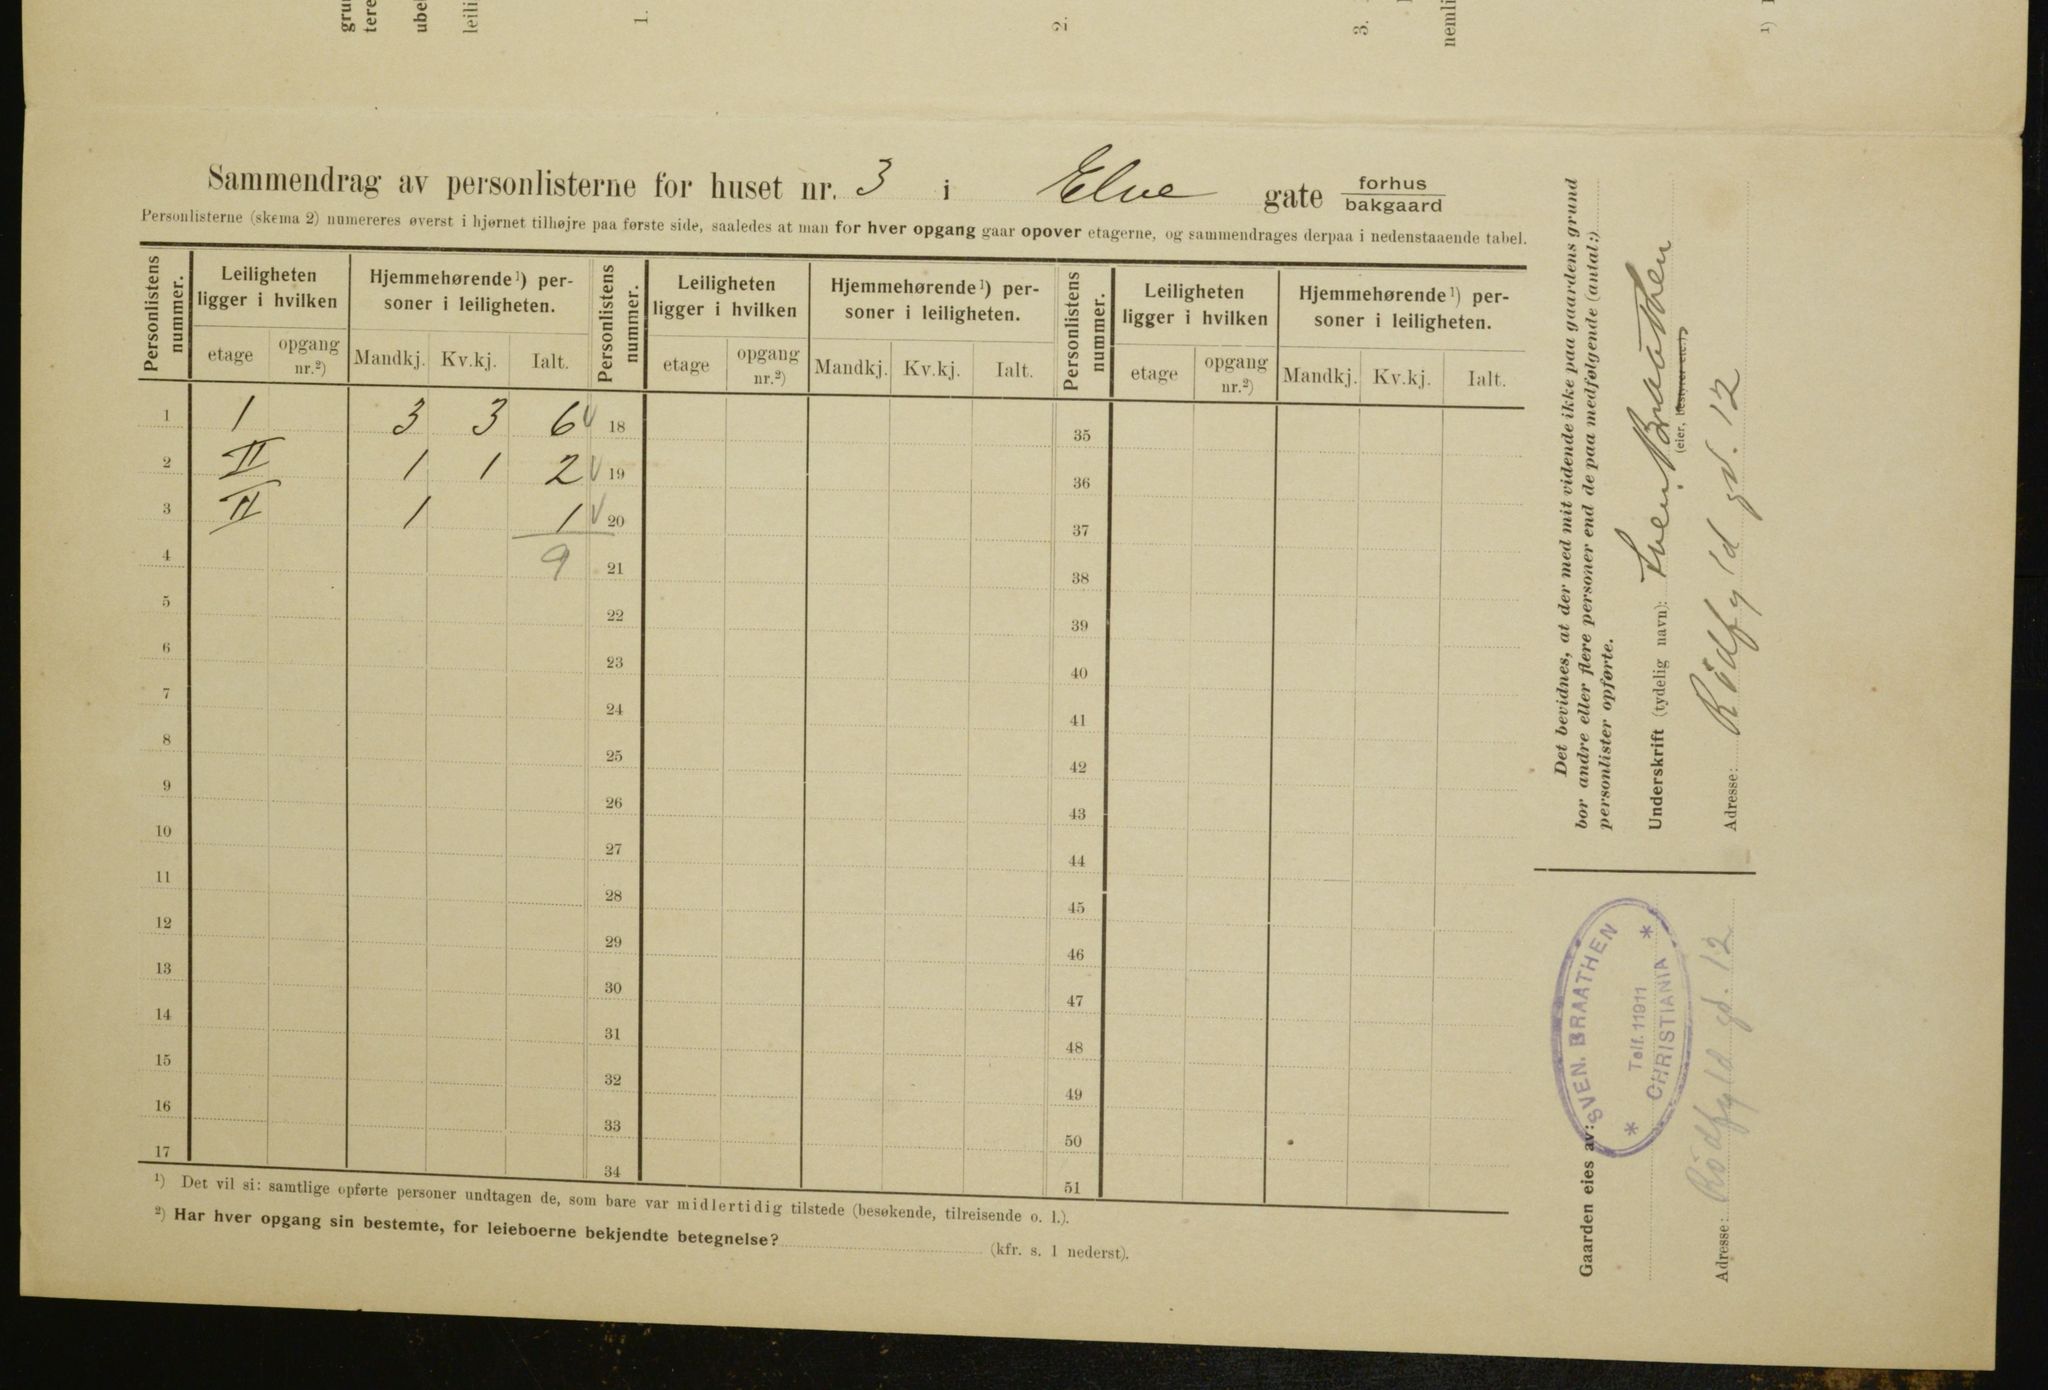 Sammendrag av personlisterne for huset nr. 3 i Elve gate forhus bakgaard
Personlisterne (skema 2) numereres øverst i hjørnet tilhøjre paa første side, saaledes at man for hver opgang gaar opover etagerne, og sammendrages derpaa i nedenstaaende tabel.
Personlistens nummer. Leiligheten ligger i hvilken Hjemmehørende¹) personer i leiligheten. Personlistens nummer. Leiligheten ligger i hvilken Hjemmehørende¹) personer i leiligheten. Personlistens nummer. Leiligheten ligger i hvilken Hjemmehørende¹) personer i leiligheten.
etage opgang nr.²) Mandkj. Kv.kj. Ialt. etage opgang nr.²) Mandkj. Kv.kj. Ialt. etage opgang nr.²) Mandkj. Kv.kj. Ialt.
1 I 3 3 6 √ 18 35
2 II 1 1 2 √ 19 36
3 II 1 1 √ 20 37
4 9 21 38
5 22 39
6 23 40
7 24 41
8 25 42
9 26 43
10 27 44
11 28 45
12 29 46
13 30 47
14 31 48
15 32 49
16 33 50
17 34 51
¹) Det vil si: samtlige opførte personer undtagen de, som bare var midlertidig tilstede (besøkende, tilreisende o. l.).
²) Har hver opgang sin bestemte, for leieboerne bekjendte betegnelse? (kfr. s. 1 nederst).
Det bevidnes, at der med mit vidende ikke paa gaardens grund
bor andre eller flere personer end de paa medfølgende (antal:)
personlister opførte.
Underskrift (tydelig navn): Sven Braathen
(eier, bestyrer etc.)
Adresse: Rödfyld gd. 12
Gaarden eies av:
SVEN. BRAATHEN
Telf. 11911
* CHRISTIANIA *
Adresse: Rödfyld gd. 12
1.
2.
3.
¹)